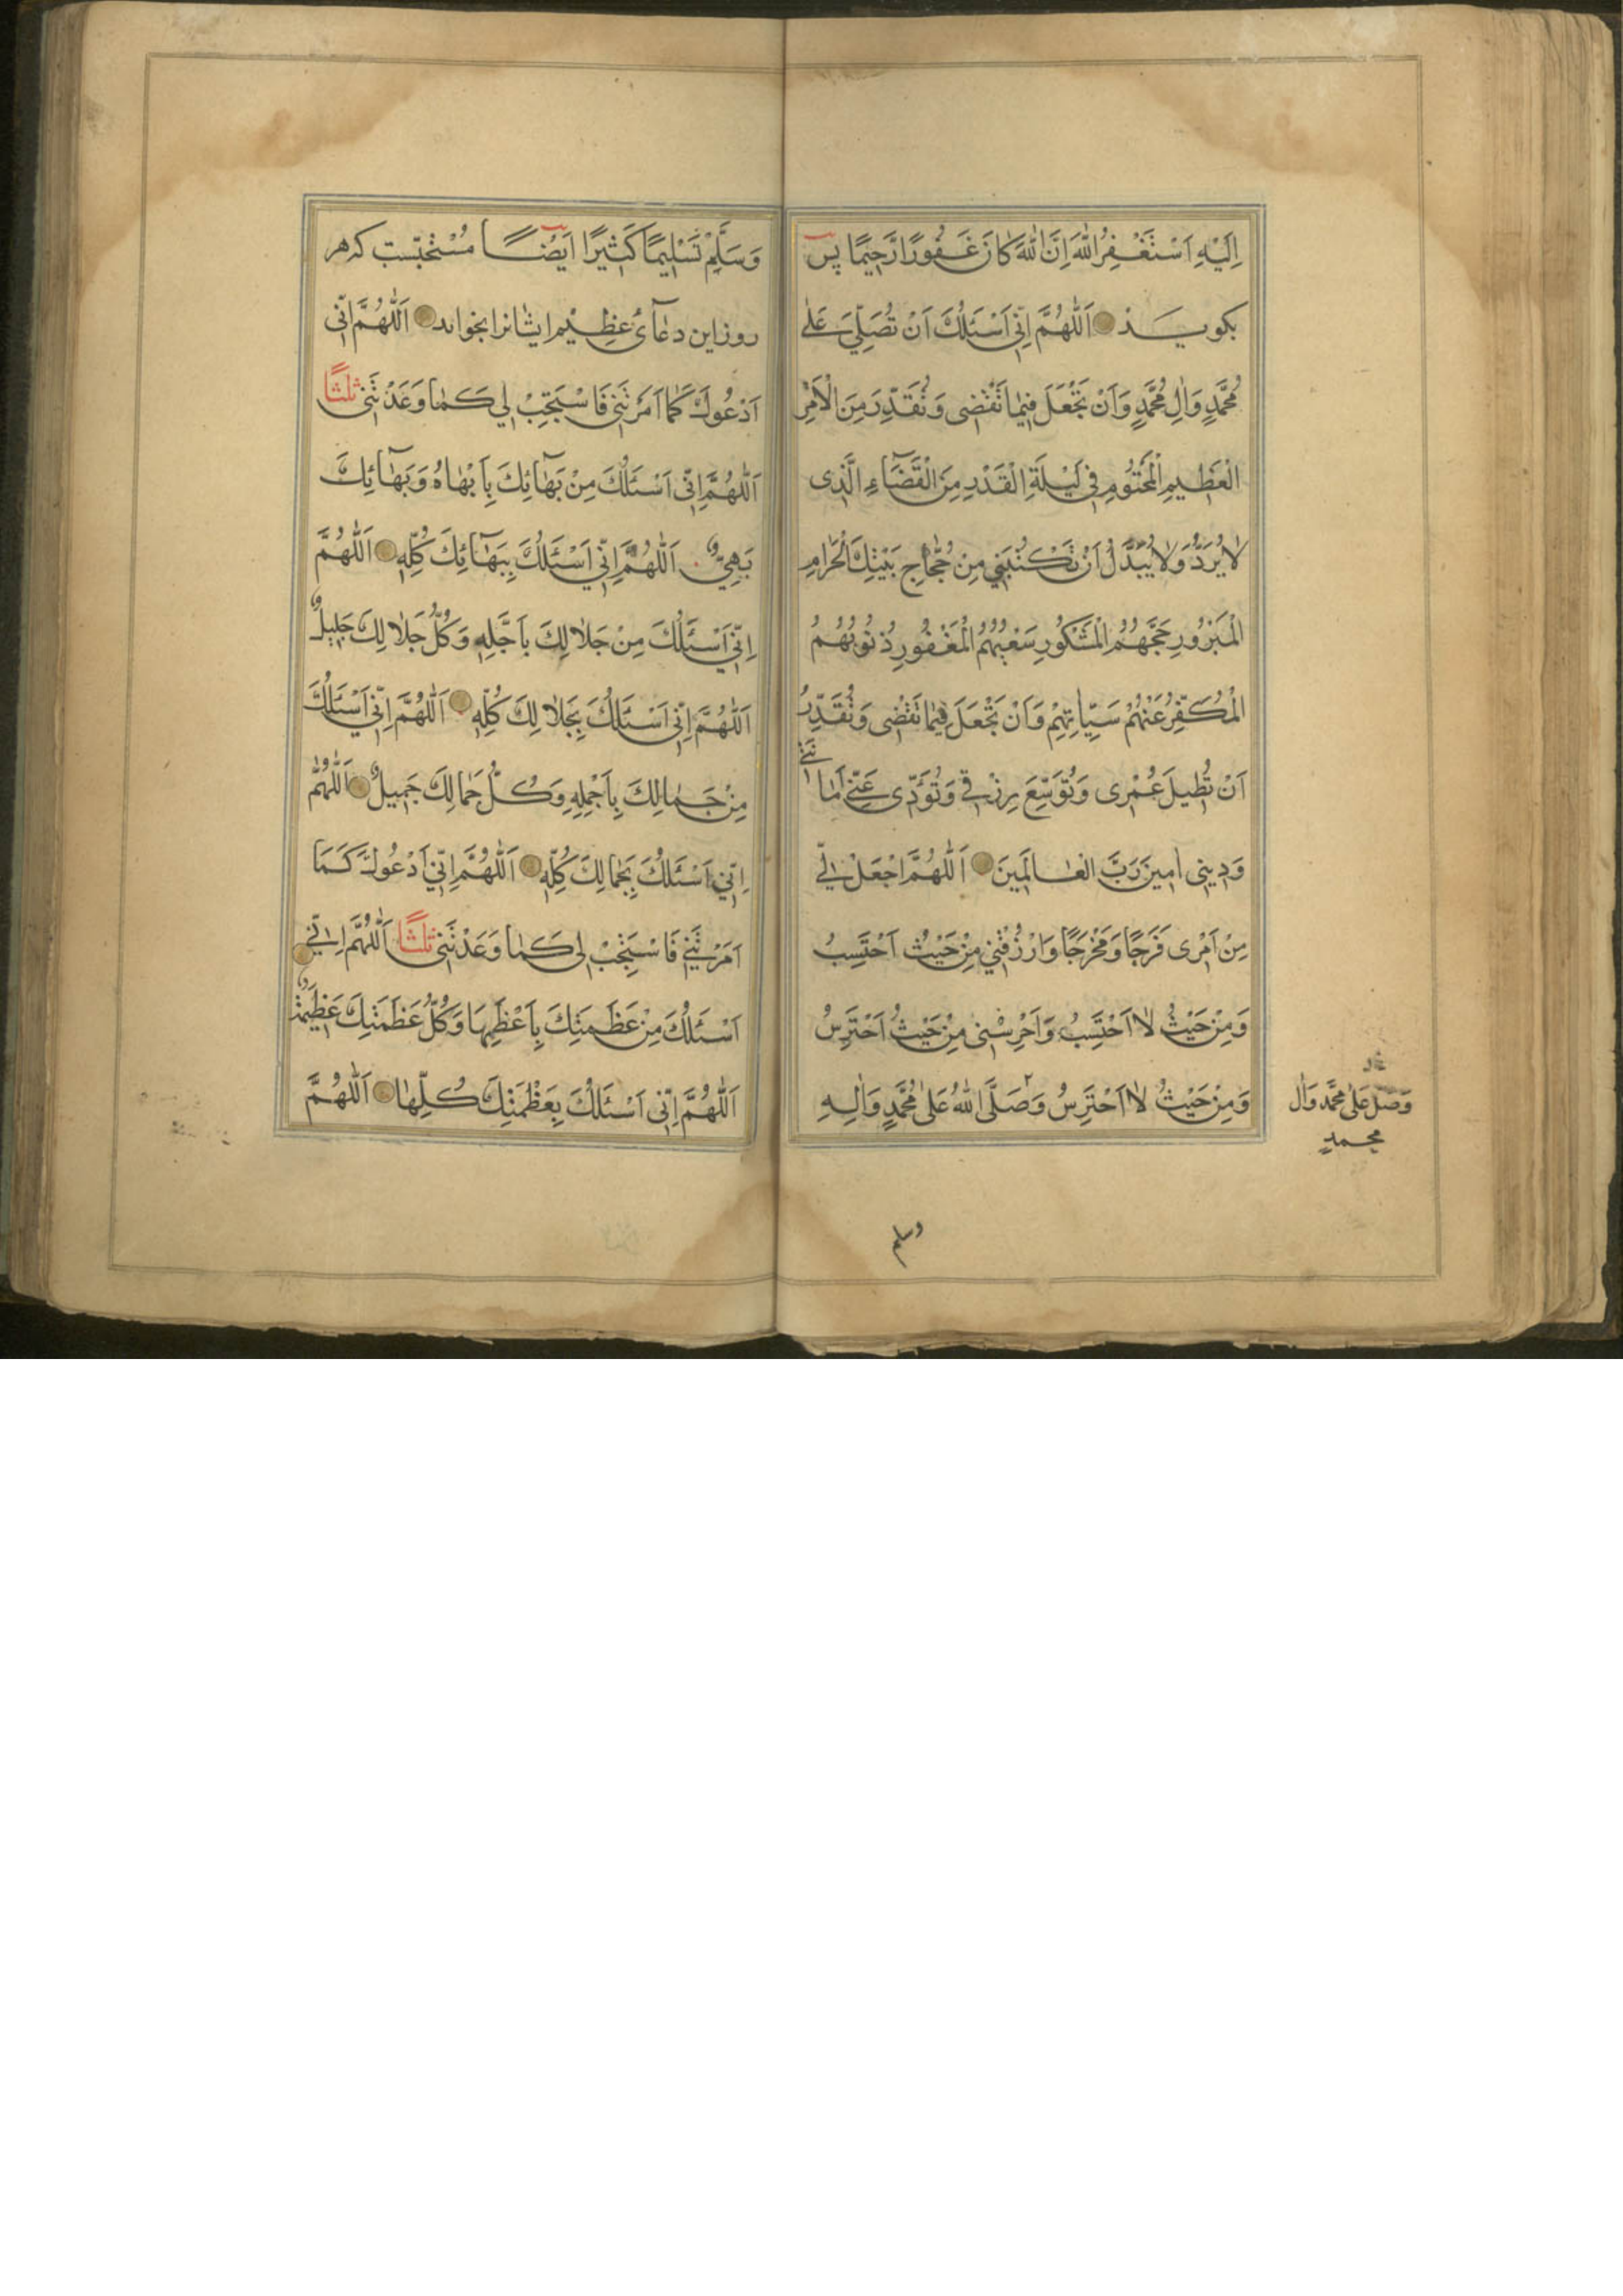 اِلَيْهِ اَسْتَغْفِرُ اللّٰهَ اِنَّ اللّٰهَ كَانَ غَفُورًا رَّحِيمًا پس
بكويـــد اَللّٰهُمَّ اِنّي اَسْئَلُكَ اَنْ تُصَلِّيَ عَلٰى
مُحَمَّدٍ وَاٰلِ مُحَمَّدٍ وَاَنْ تَجْعَلَ فِيمٰا تَقْضى وَتُقَدِّرَ مِنَ الْاَمْرِ
الْعَظِيمِ الْمَحْتُومِ فِي لَيْلَةِ الْقَدْرِ مِنَ الْقَضَآءِ الَّذِى
لٰا يُرَدُّ وَلٰا يُبَدَّلُ اَنْ تَكْتُبَنِي مِنْ حُجّٰاجِ بَيْتِكَ الْحَرامِ
الْمَبْرُورِ حَجُّهُمُ الْمَشْكُورِ سَعْيُهُمُ الْمَغْفُورِ ذُنُوبُهُمُ
الْمُكَفَّرِ عَنْهُمْ سَيِّاٰتِهِمْ وَاَنْ تَجْعَلَ فِيمٰا تَقْضٖى وَتُقَدِّرُ
اَنْ تُطٖيلَ عُمْرٖى وَتُوَسِّعَ رِزْقٖي وَتُؤَدّٖى عَنّٖي اَمٰانَتٖي
وَدِينٖى اٰمِينَ رَبَّ الْعٰالَمِينَ اَللّٰهُمَّ اجْعَلْ لٖي
مِنْ اَمْرٖى فَرَجًا وَمَخْرَجًا وَارْزُقْنٖي مِنْ حَيْثُ اَحْتَسِبُ
وَمِنْ حَيْثُ لٰا اَحْتَسِبُ وَاَحْرِسْنٖى مِنْ حَيْثُ اَحْتَرِسُ
وَمِنْ حَيْثُ لٰا اَحْتَرِسُ وَصَلَّى اللّٰهُ عَلٰى مُحَمَّدٍ وَاٰلِهِ
وَصَلِّ عَلٰى مُحَمَّد وَاٰل
محمدٍ
وسلم
وَسَلِّمْ تَسْلِيمًا كَثِيرًا اَيْضًـــا مُسْتَحبّست كه هر
روز اين دعآىٔ عظيم ايشٰانرا بخواند اَللّٰهُمَّ اِنّٖى
اَدْعُوكَ كَمٰا اَمَرْتَنٖى فَاسْتَجِبْ لٖي كَمٰا وَعَدْتَنٖى ثلثًا
اَللّٰهُمَّ اِنّٖى اَسْئَلُكَ مِنْ بَهٰآئِكَ بِاَبْهٰاهُ وَبَهٰآئِكَ
بَهِيٌّ اَللّٰهُمَّ اِنّٖي اَسْئَلُكَ بِبَهٰآئِكَ كُلِّهِ اَللّٰهُمَّ
اِنّٖي اَسْئَلُكَ مِنْ جَلٰالِكَ بِاَجَلِّهِ وَكُلُّ جَلٰالِكَ جَلِيلٌ
اَللّٰهُمَّ اِنّٖى اَسْئَلُكَ بِجَلٰالِكَ كُلِّهِ اَللّٰهُمَّ اِنّٖي اَسْئَلُكَ
مِنْ جَمٰالِكَ بِاَجْمَلِهِ وَكُلُّ جَمٰالِكَ جَمِيلٌ اَللّٰهُمَّ
اِنّٖي اَسْئَلُكَ بِجَمٰالِكَ كُلِّهِ اَللّٰهُمَّ اِنّٖي اَدْعُوكَ كَمَا
اَمَرْتَنٖي فَاسْتَجِبْ لٖى كَمٰا وَعَدْتَنٖى ثلثًا اَللّٰهُمَّ اِنّٖي
اَسْئَلُكَ مِنْ عَظَمَتِكَ بِاَعْظَمِهَا وَكُلُّ عَظَمَتِكَ عَظِيمَةٌ
اَللّٰهُمَّ اِنّٖى اَسْئَلُكَ بِعَظَمَتِكَ كُلِّهٰا اَللّٰهُمَّ